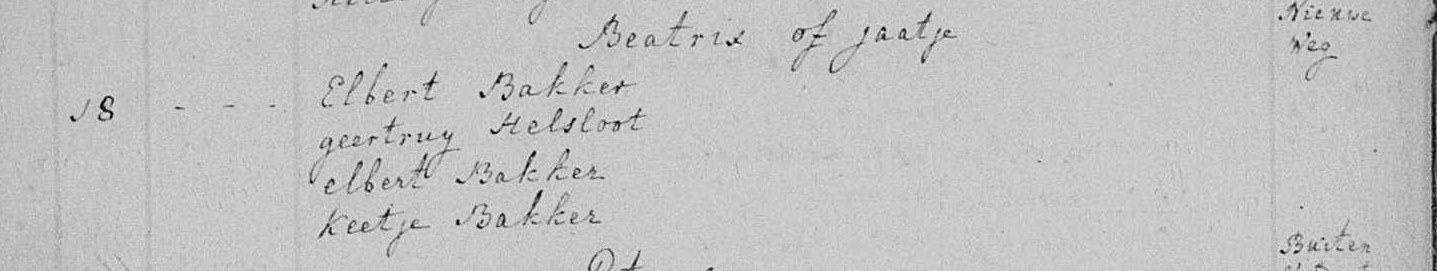 Nieuwe
Beatrix of jaatje
Weg
18 - - - Elbert Bakker
geertruy Helsloot
elbert Bakker
Keetje Bakker
Buiten